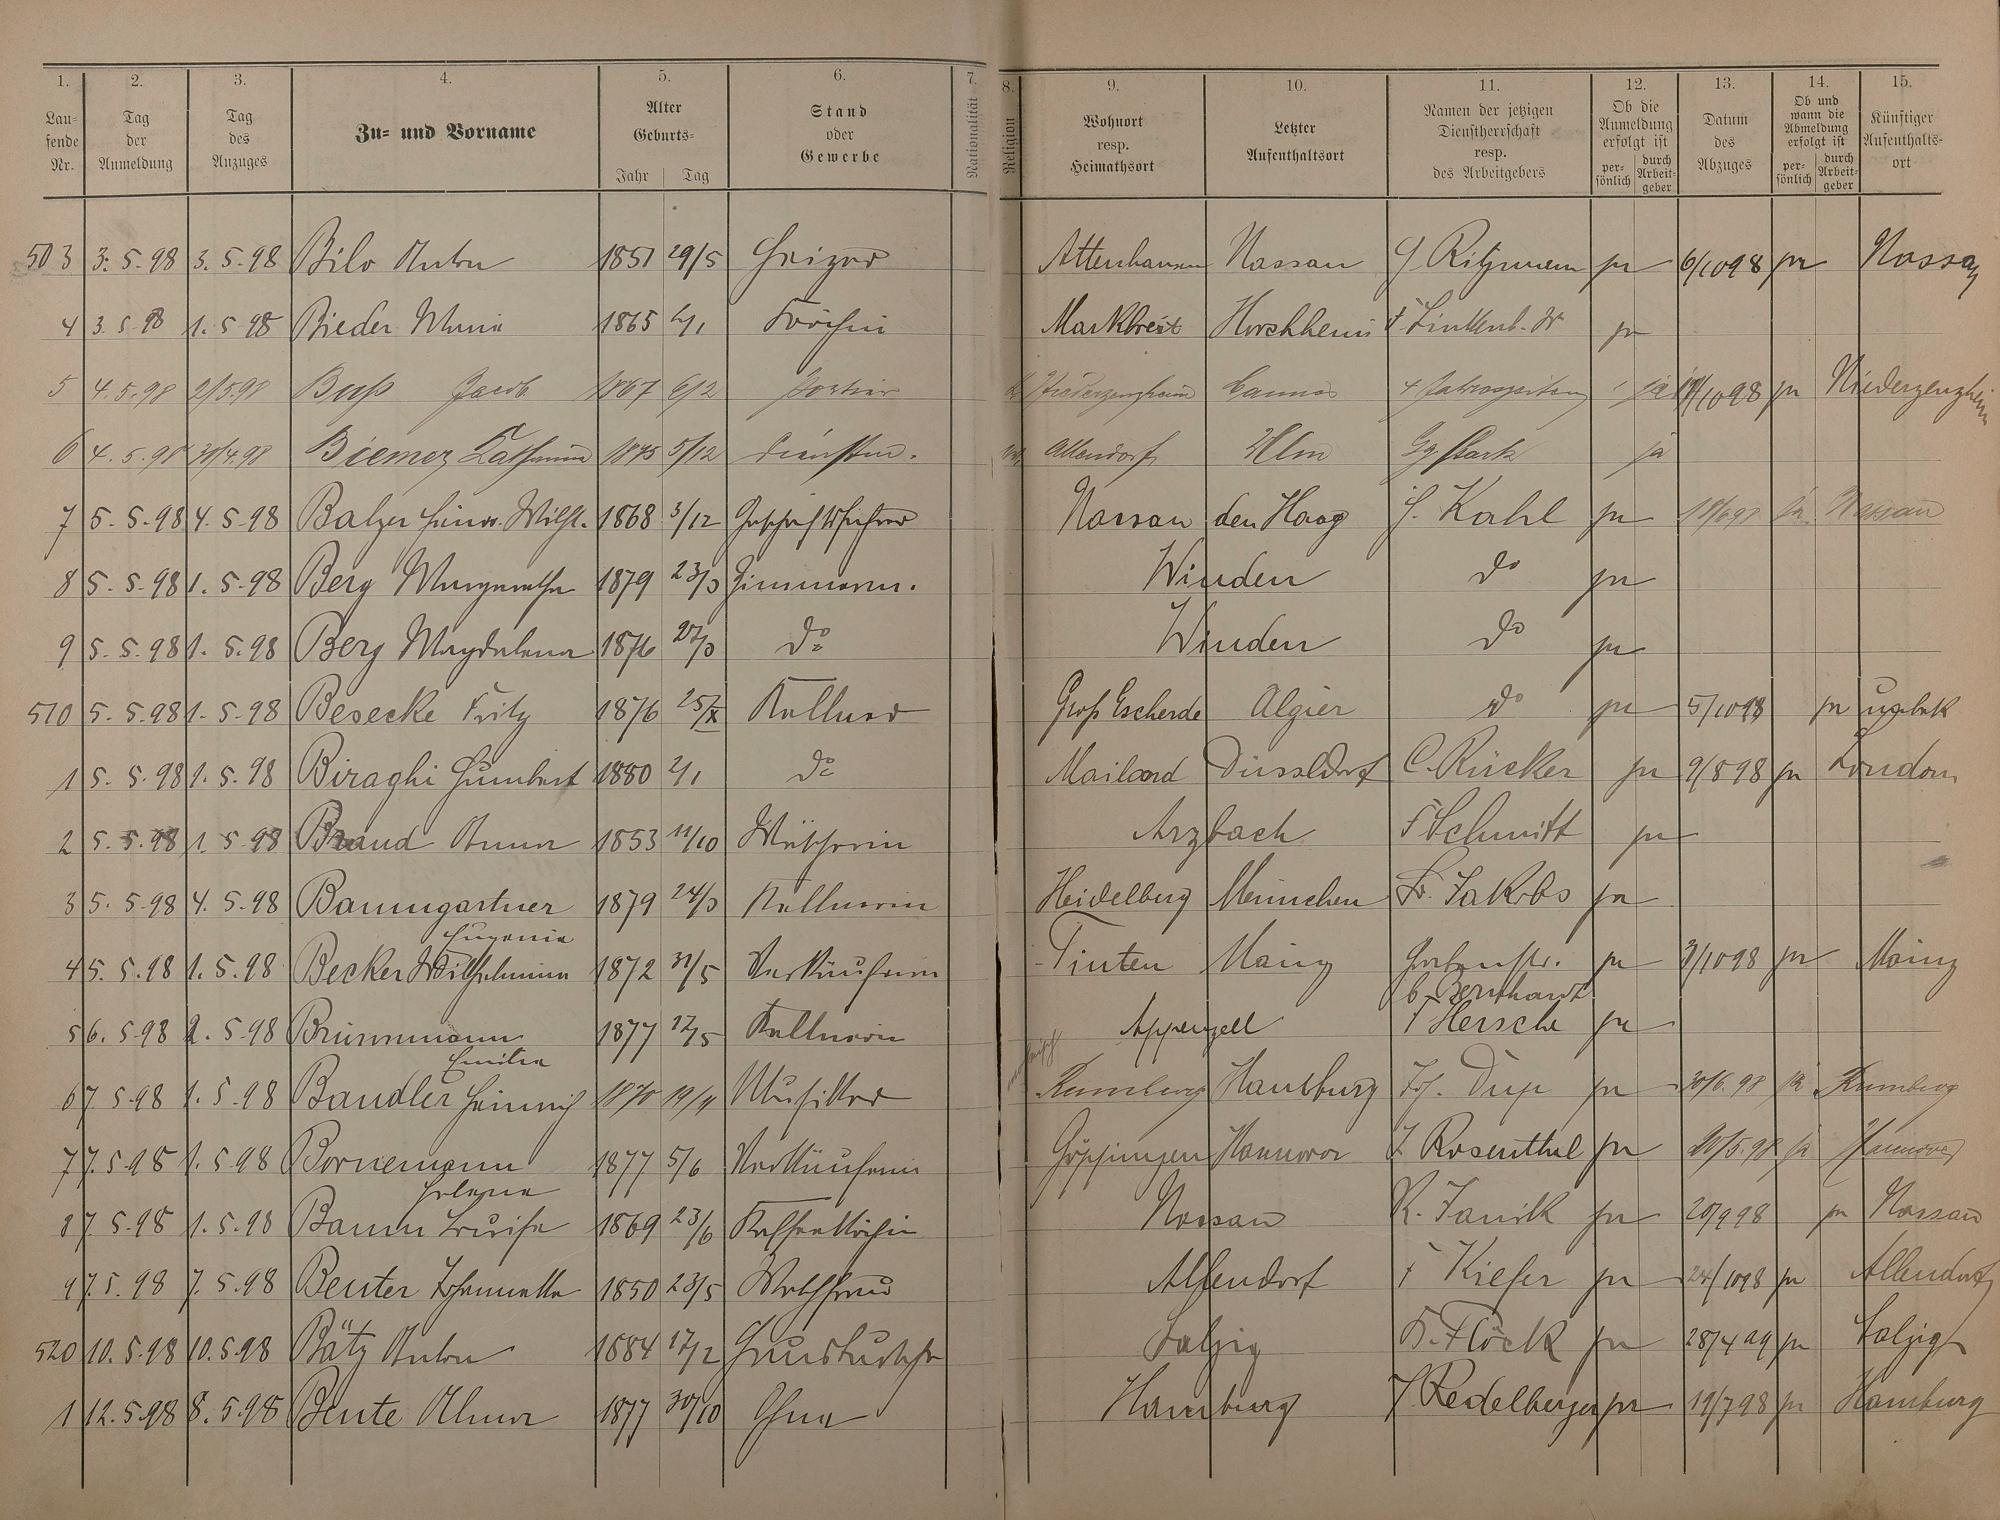 1. 2. 3. 4. 5. 6. 7. 8. 9. 10. 11. 12. 13. 14. 15.
Laufende Nr. Tag der Anmeldung Tag des Anzuges Zu- und Vorname Alter Geburts- Jahr Tag Stand oder Gewerbe Nationalität Religion Wohnort resp. Heimathsort Letzter Aufenthaltsort Namen der jetzigen Dienstherrschaft resp. des Arbeitgebers Ob die Anmeldung erfolgt ist persönlich durch Arbeitgeber Datum des Abzuges Ob und wann die Abmeldung erfolgt ist persönlich durch Arbeitgeber Künftiger Aufenthaltsort
503 3.5.98 3.5.98 Bilo Anton 1851 29/5 Heizer Attenhausen Nassau Ritzmann ja 6/10 98 ja Nassau
4 3.5.98 1.5.98 Bieder Maria 1865 2/1 Köchin Markbreit Horchheim ja
5 4.5.98 2/5.98 Jacob 1867 6/2 Portier Niederzeuzheim Cannes 4 Jahreszeiten ja 10 98 ja Niederzeuzheim
6 4.5.98 30/4.98 Biemer Katharina 1875 5/12 Dienstm. Allendorf Ulm Gg. Stark ja
7 5.5.98 4.5.98 Balzer Heinr. Wilh. 1868 3/12 Geschäftsführer Nassau den Haag H. Kahl ja 98 ja Nassau
8 5.5.98 1.5.98 Berg Margaretha 1879 23/3 Zimmerm. Winden do ja
9 5.5.98 1.5.98 Berg Magdalena 1876 27/3 do Winden do ja
510 5.5.98 1.5.98 Besecke Fritz 1876 25/X Kellner Groß Escherde Algier do ja 5/10 98 ja unbek
1 5.5.98 1.5.98 Biraghi Humbert 1880 2/1 do Mailand Düsseldorf C. Rücker ja 9/8 98 ja London
2 5.5.98 1.5.98 Braud Anna 1853 11/10 Wäscherin Arzbach F Schmitt ja
3 5.5.98 4.5.98 Baumgartner 1879 24/3 Kellnerin Heidelberg München Fr. Jakobs ja
Eugenie
4 5.5.98 1.5.98 Becker Wilhelmine 1872 31/5 Verkäuferin Tinten Mainz ja 3/10 98 ja Mainz
b. Bernhardt
5 6.5.98 2.5.98 Brunnmann 1877 17/5 Kellnerin Appenzell F Hersche ja
Emilie
6 7.5.98 1.5.98 Bandler Heinrich 1870 19/4 Musiker Rumberg Hamburg ja 30/6.98 ja Rumberg
7 7.5.98 1.5.98 Bornemann 1877 5/6 Verkäuferin Göppingen Hannover J Rosenthal ja 98 ja Hannover
Helene
8 7.5.98 1.5.98 Baum Louise 1869 23/6 Kaffeeköchin Nassau R. Janik ja 20/9 98 ja Nassau
9 7.5.98 7.5.98 Beuter Johannette 1850 23/5 Waschfrau Allendorf F Kiefer ja 24/10 98 ja Allendorf
520 10.5.98 10.5.98 Bätz Anton 1884 17/2 Hausbursche Salzig F. Flöck ja 28/4 99 ja Salzig
1 12.5.98 8.5.98 Beute Alma 1877 30/10 Ohne Hamburg J Redelberger ja 19/7 98 ja Hamburg